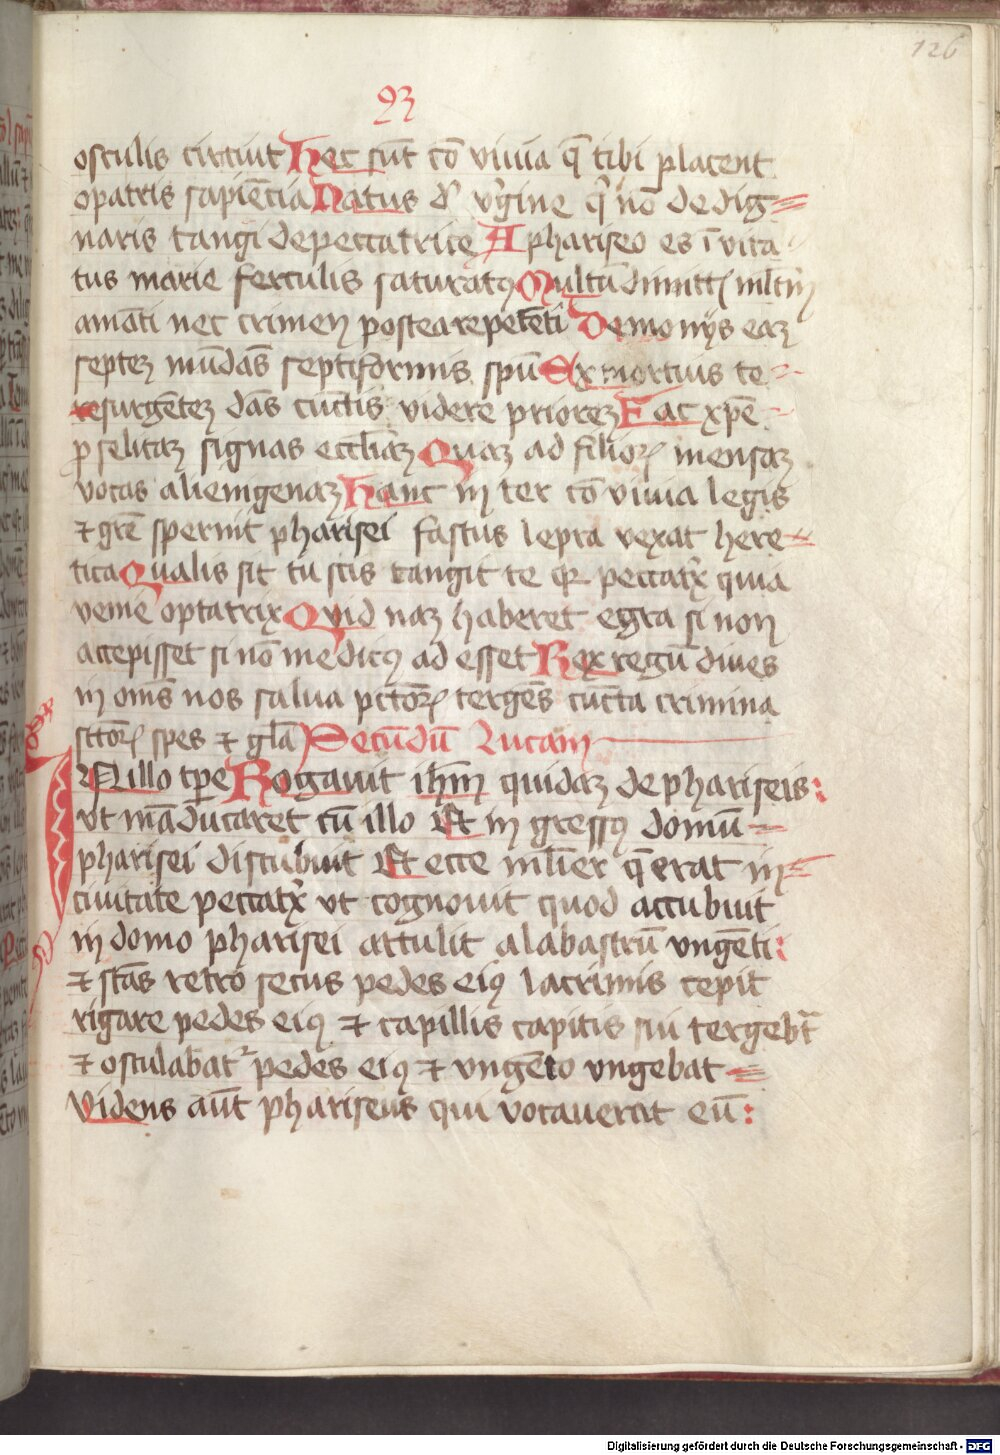 126
93
osculis circuit Hec sūt cō viuia q̄ tibi placent
opatris sapiēcia Natus d' v'gine q' nō dedig=
naris tangi depeccatrice A phariseo es ī vita
tus marie ferculis saturatꝰ Multū dimitt
amāti nec crimen postea repetēti Demonijs eaꝫ
septeꝫ mūdas septiformis spū Ex mortuis te
resurgēteꝫ das cūctis videre prioreꝫ Hac xp̄e
ꝓselitaꝫ signas eccl̄iaꝫ Quaꝫ ad filioꝝ mensaꝫ
vocas alienigenaꝫ Hanc in ter cō viuia legis
⁊ grē spernit pharisei fastus lepra vexat here=
tica Qualis sit tu scis tangit te qꝛ peccat'x quia
venie optatrix Quid naꝫ haberet egra si non
accepisset si nō medicꝰ ad esset Rex regū diues
in om̄s nos salua pctōꝝ tergēs cūcta crimina
sctōꝝ spes ⁊ gl̄a Secūdū Lucam
IN illo tp̄e Rogauit ih̄m quidaꝫ de phariseis:
vt māducaret cū illo Et in gressꝰ domū=
pharisei discubuit Et ecce mul̄ier q̄ erat in=
ciuitate peccat'x vt cognouit quod accubuit
in domo pharisei attulit alabastrū vngēti:
⁊ stās retro secus pedes eiꝰ lacrimis cepit
rigare pedes eiꝰ ⁊ capillis capitis sui tergeb̄t
⁊ osculabat᷑ pedes eiꝰ ⁊ vngēto vngebat=
Videns aūt phariseus qui vocauerat eū:
Digitalisierung gefördert durch die Deutsche Forschungsgemeinschaft - DFG